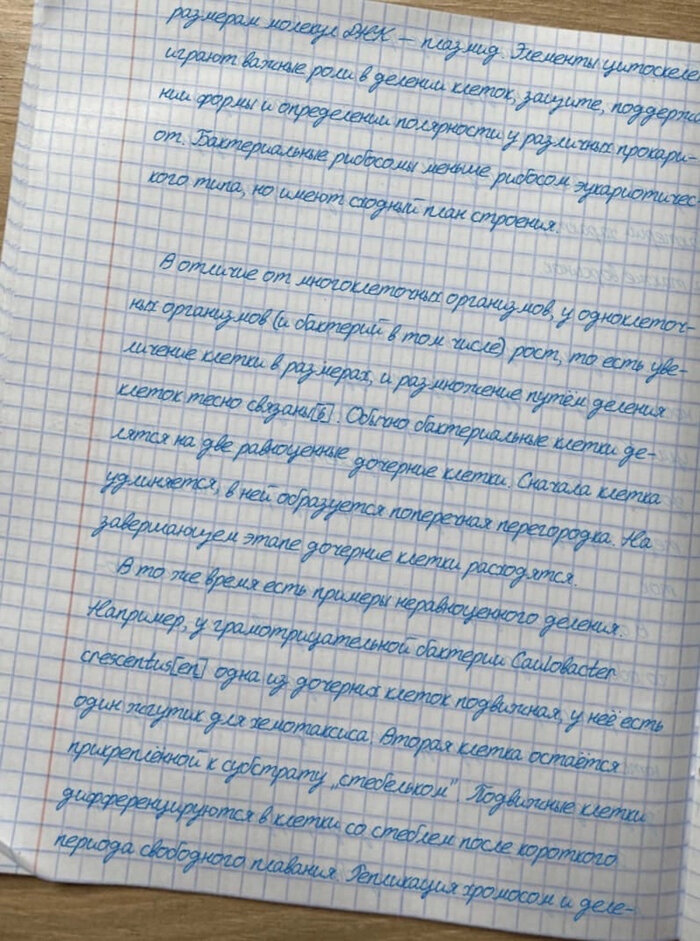 размерам молекул ДНК — плазмид. Элементы цитоскеле
играют важные роли в делении клеток, защите, поддержа
нии формы и определении полярности у различных прокари-
от. Бактериальные рибосомы меньше рибосом эукариотичес-
кого типа, но имеют сходный план строения.
В отличие от многоклеточных организмов, у одноклеточ-
ных организмов (и бактерий в том числе) рост, то есть уве-
личение клетки в размерах, и размножение путём деления
клеток тесно связаны[6]. Обычно бактериальные клетки де-
лятся на две равноценные дочерние клетки. Сначала клетка
удлиняется, в ней образуется поперечная перегородка. На
завершающем этапе дочерние клетки расходятся.
В то же время есть примеры неравноценного деления.
Например, у грамотрицательной бактерии Caulobacter
crescentus[en] одна из дочерних клеток подвижная, у неё есть
один жгутик для хемотаксиса. Вторая клетка остаётся
прикреплённой к субстрату „стебельком". Подвижные клетки
дифференцируются в клетки со стеблем после короткого
периода свободного плавания. Репликация хромосом и деле-